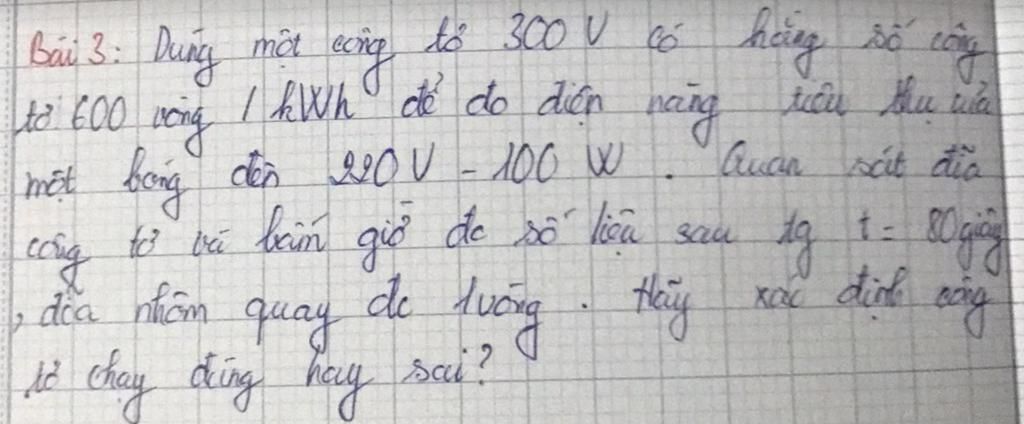 Bài 3: Dùng một công tơ 300 V có hằng số công
tơ 600 vòng / kWh để đo điện năng tiêu thụ của
một bóng đèn 220 V - 100 W . Quan sát đĩa
công tơ và bấm giờ đc số liệu sau tg t = 80 giây
, đĩa nhôm quay đc 1 vòng . Hãy xác định công
tơ chạy đúng hay sai?